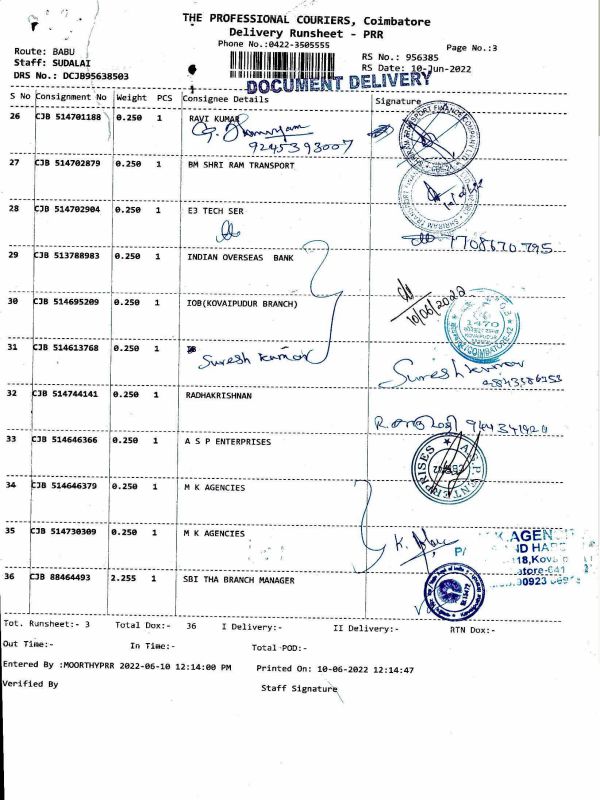 THE PROFESSIONAL COURIERS, Coimbatore
Delivery Runsheet - PRR
Phone No.:0422-3505555
Page No.:3
Route: BABU
RS No.: 956385
Staff: SUDALAI
RS Date: 10-Jun-2022
DRS No.: DCJB95638503
DOCUMENT DELIVERY
S No Consignment No Weight PCS Consignee Details Signature
26 CJB 514701188 0.250 1 RAVI KUMAR
9245393007
27 CJB 514702879 0.250 1 BM SHRI RAM TRANSPORT
28 CJB 514702904 0.250 1 E3 TECH SER
7708670795
29 CJB 513788983 0.250 1 INDIAN OVERSEAS BANK
30 CJB 514695209 0.250 1 IOB(KOVAIPUDUR BRANCH)
10/06/2022
1470
31 CJB 514613768 0.250 1 Suresh Kumar
Suresh Kumar
32 CJB 514744141 0.250 1 RADHAKRISHNAN
33 CJB 514646366 0.250 1 A S P ENTERPRISES
A.S.P ENTERPRISES
34 CJB 514646379 0.250 1 M K AGENCIES
35 CJB 514730309 0.250 1 M K AGENCIES
36 CJB 88464493 2.255 1 SBI THA BRANCH MANAGER
Tot. Runsheet:- 3 Total Dox:- 36 I Delivery:- II Delivery:- RTN Dox:-
Out Time:- In Time:- Total POD:-
Entered By :MOORTHYPRR 2022-06-10 12:14:00 PM Printed On: 10-06-2022 12:14:47
Verified By Staff Signature